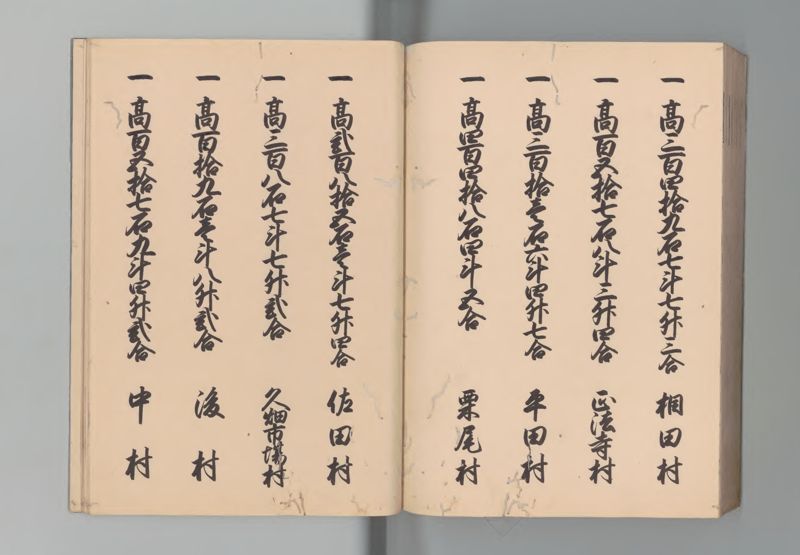 一 高三百四拾九石七斗七升三合 桐田村
一 高百五拾七石八斗三升四合 正法寺村
一 高三百拾壱石六斗四升七合 平田村
一 高四百四拾八石四斗五合 栗尾村
一 高弐百八拾五石壱斗七升四合 佐田村
一 高三百八石七斗七升弐合 久畑市場村
一 高百拾九石壱斗八升弐合 後村
一 高百五拾七石九斗四升弐合 中村